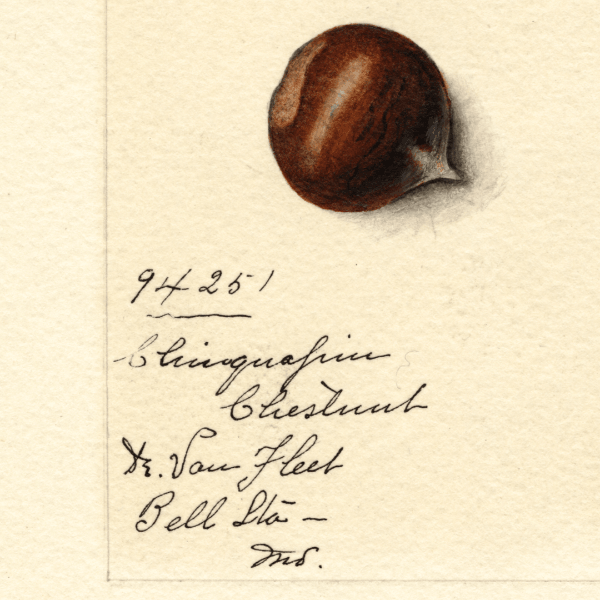 94251
Chinquapin
Chestnut
Dr. Van Fleet
Bell Sta -
Md.